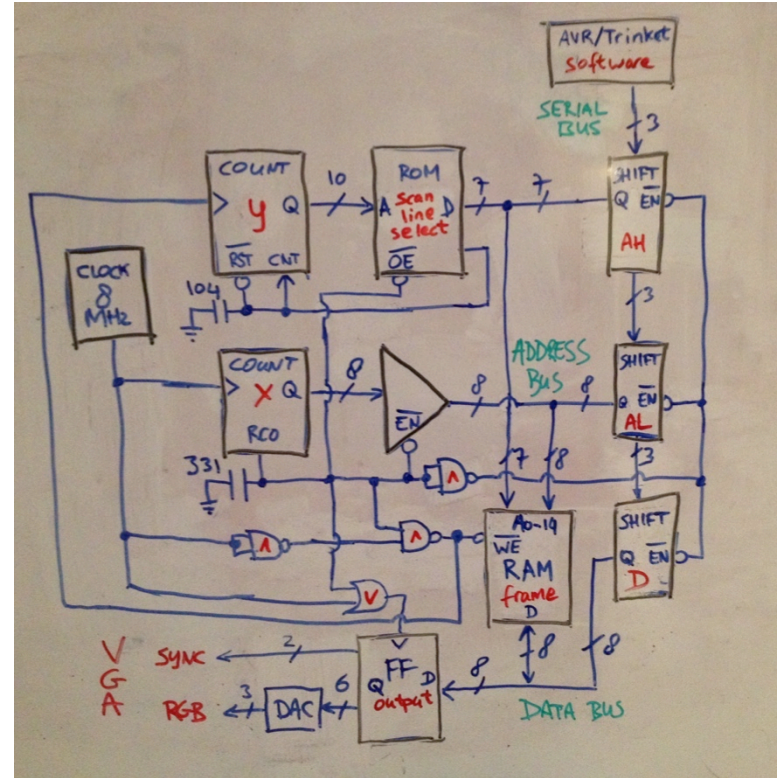 AVR/Trinket
software
SERIAL
BUS
3
COUNT
y
Q
RST
CNT
10
ROM
A
scan
line
select
D
OE
7
7
SHIFT
Q
EN
AH
CLOCK
8
MHz
104
3
COUNT
X
Q
RCO
8
EN
8
ADDRESS
BUS
8
SHIFT
Q
EN
AL
331
3
7
8
Λ
Λ
Λ
V
A0-14
WE
RAM
frame
D
SHIFT
Q
EN
D
8
8
V
G
A
SYNC
2
RGB
3
DAC
6
FF
Q
D
output
8
DATA BUS